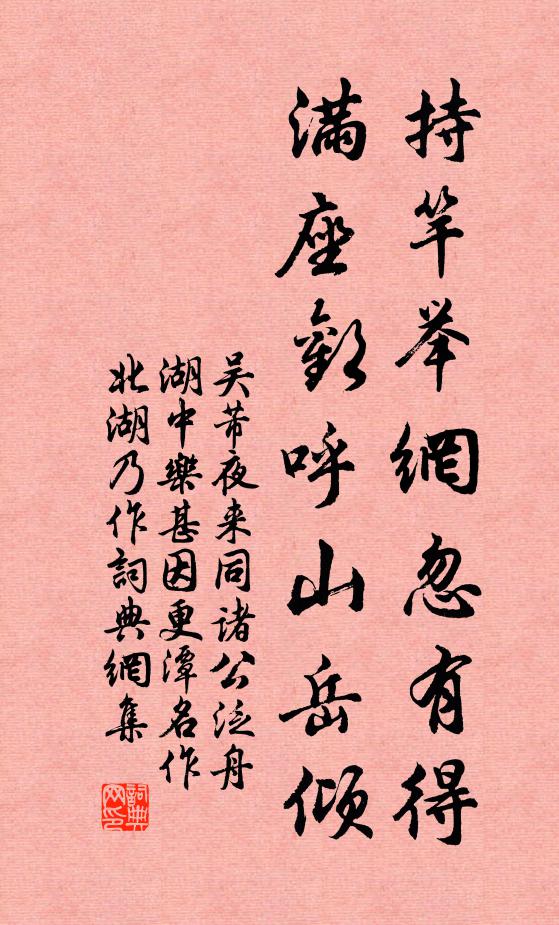 持竿举網忽有得
滿座歡呼山岳傾
吴芾夜来同诸公泛舟
湖中樂甚因更潭名作
北湖乃作詞典網集
詞典网印